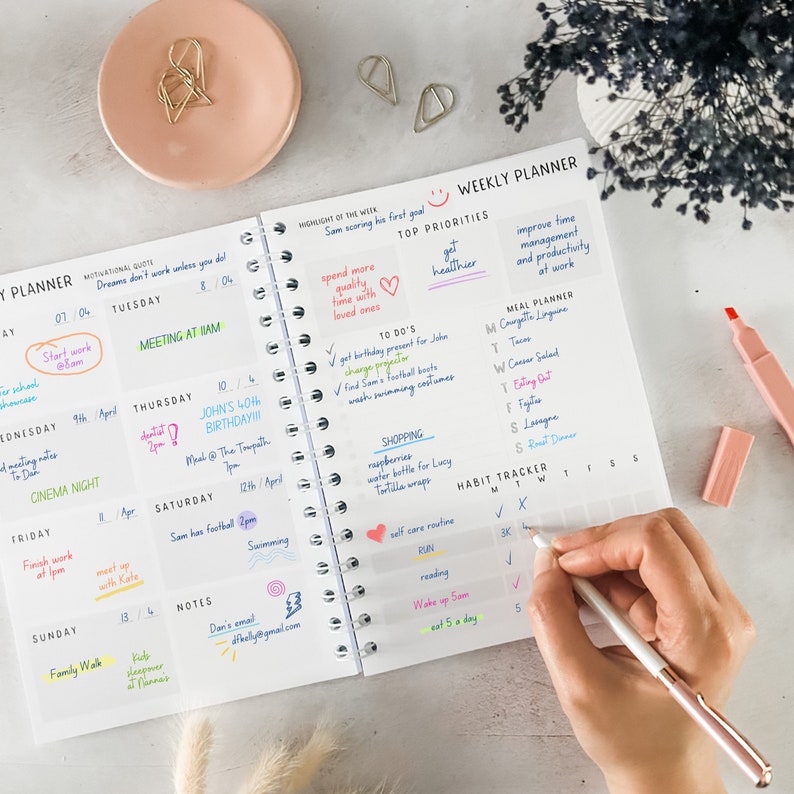 Y PLANNER
MOTIVATIONAL QUOTE
Dreams don't work unless you do!
AY
07 / 04
Start work
@8am
er school
showcase
TUESDAY
8 / 04
MEETING AT 11AM
EDNESDAY
9th / April
d meeting notes
to Dan
CINEMA NIGHT
THURSDAY
10 / 4
dentist
2pm !
JOHN'S 40th
BIRTHDAY!!!
Meal @ The Towpath
7pm
FRIDAY
11 / Apr
Finish work
at 1pm
meet up
with Kate
SATURDAY
12th / April
Sam has football 2pm
Swimming
SUNDAY
13 / 4
Family Walk
Kids
sleepover
at Nanna's
NOTES
Dan's email:
dfkelly@gmail.com
WEEKLY PLANNER
HIGHLIGHT OF THE WEEK
Sam scoring his first goal
TOP PRIORITIES
spend more
quality
time with
loved ones
get
healthier
improve time
management
and productivity
at work
TO DO'S
get birthday present for John
charge projector
find Sam's football boots
wash swimming costumes
SHOPPING:
raspberries
water bottle for Lucy
tortilla wraps
MEAL PLANNER
M Courgette Linguine
T Tacos
W Caesar Salad
T Eating Out
F Fajitas
S Lasagne
S Roast Dinner
HABIT TRACKER
M T W T F S S
self care routine
RUN 3K 4
reading
Wake up 5am
eat 5 a day 5